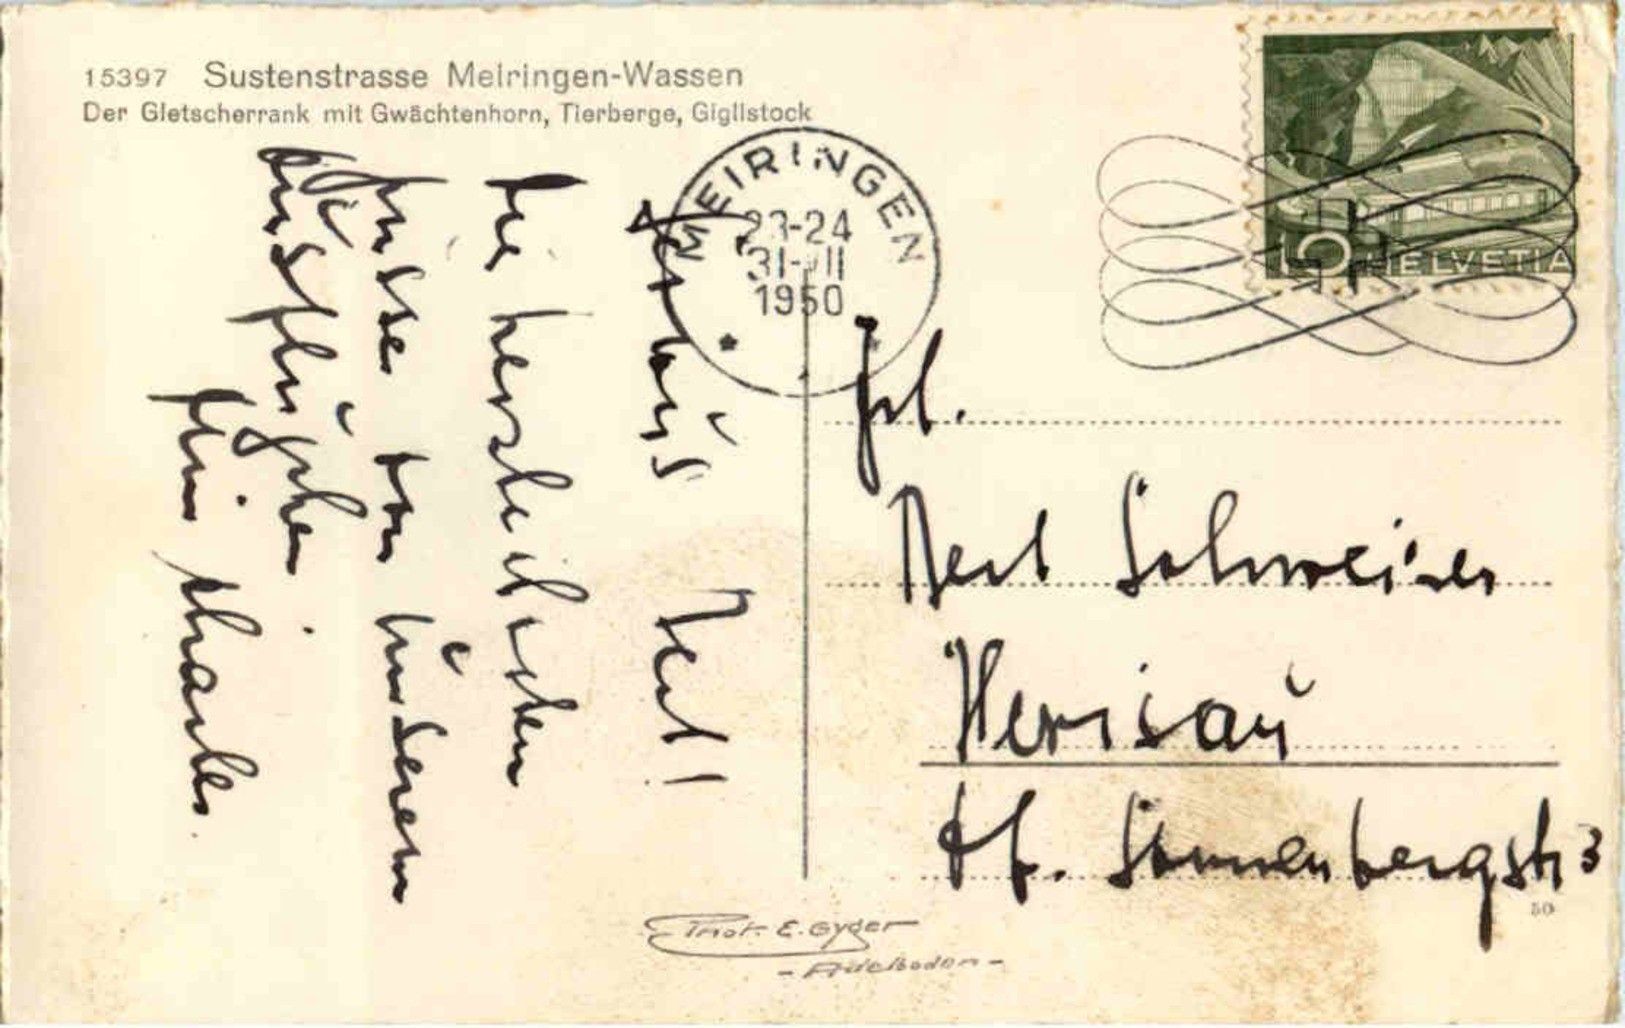 15397 Sustenstrasse Meiringen-Wassen
Der Gletscherrank mit Gwächtenhorn, Tierberge, Giglistock
MEIRINGEN
23-24
31-VII
1950
HELVETIA
Die herzlichsten
Grüsse von unserem
Ausflügchen
Dein Charles.
Frl.
Schweizer
Herisau
Sonnenbergstr 3
50
Phot. E. Gyger
- Adelboden -